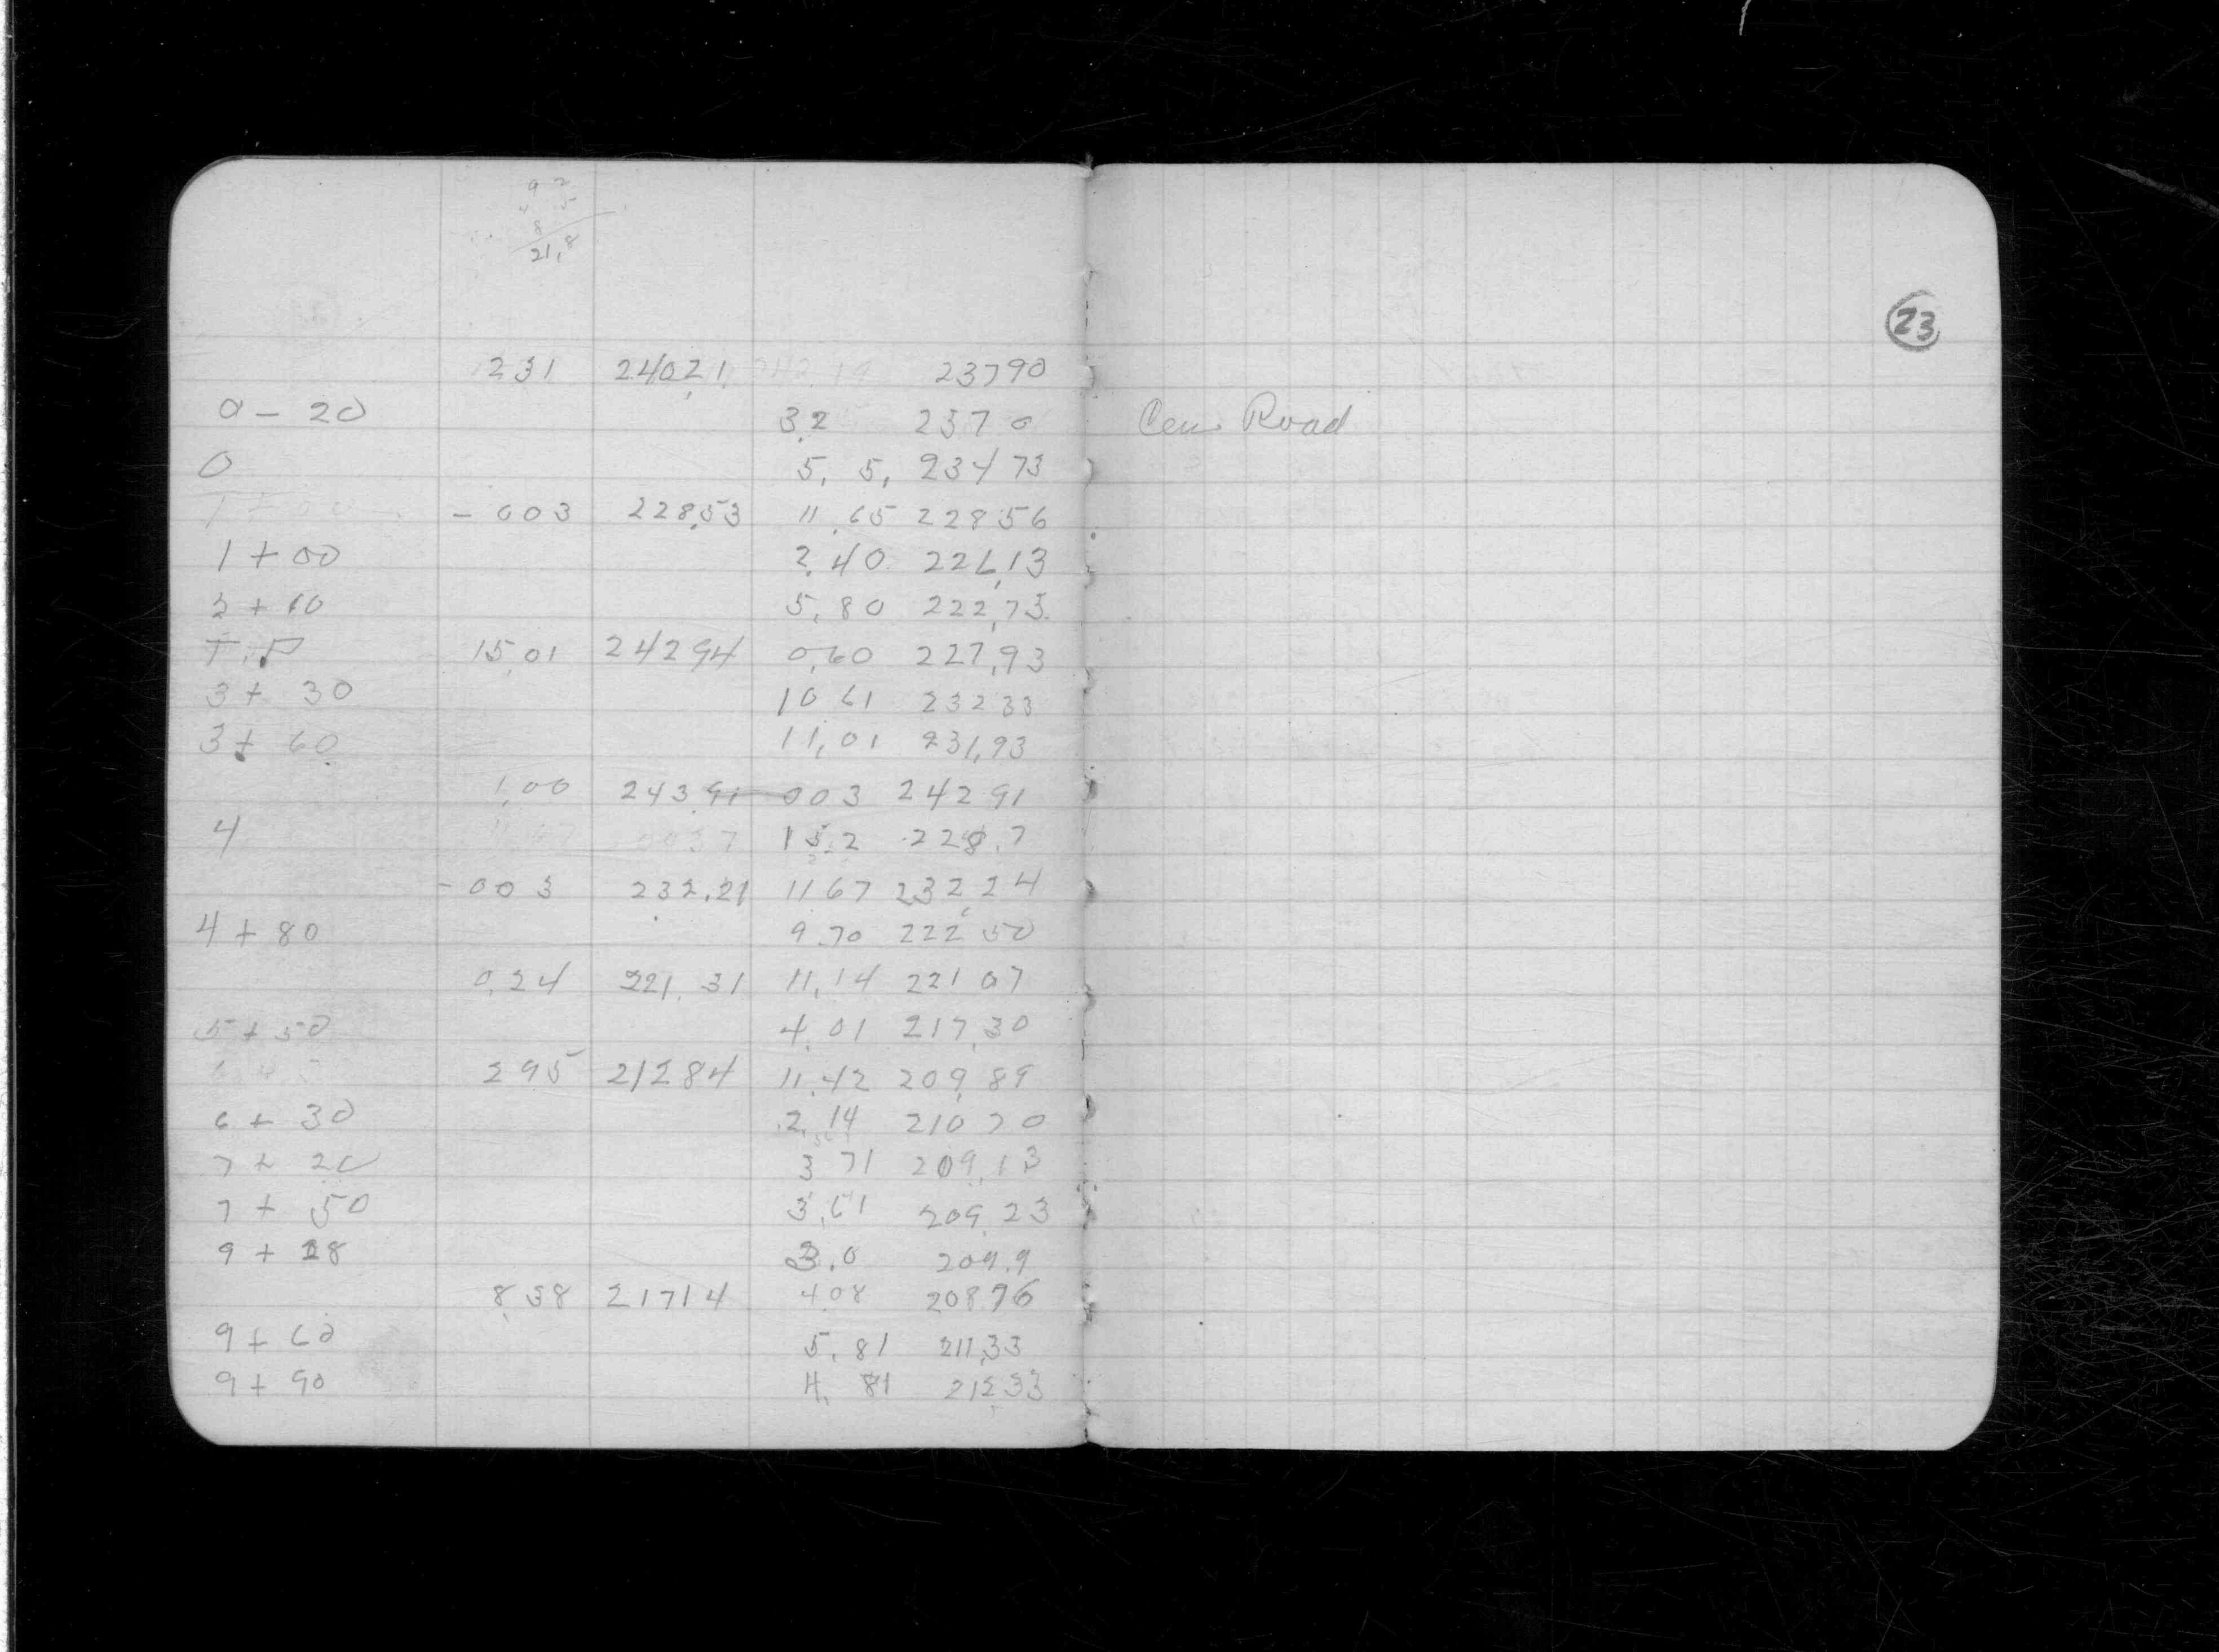 9 2
4 5
8
21,8
23
231 24021 23790
0 - 20 3.2 237 0 Cen. Road
0 5, 5, 234 73
- 003 228,53 11.65 228 56
1 + 00 2.40 226,13
2 + 10 5,80 222,73
T.P 15,01 24294 0,60 227,93
3 + 30 10 61 232 33
3 + 60 11,01 231,93
1,00 243,91 - 003 242 91
4 15.2 228.7
- 003 232.21 11 67 232 24
4 + 80 9.70 222 50
0.24 221.31 11,14 221 07
5 + 50 4.01 217.30
295 21284 11.42 209,89
6 + 30 2.14 210 70
7 + 20 3 71 209,13
7 + 50 3,61 209.23
9 + 28 3.0 209.9
8.38 21714 4.08 208.76
9 + 60 5.81 211,33
9 + 90 4. 81 212,33